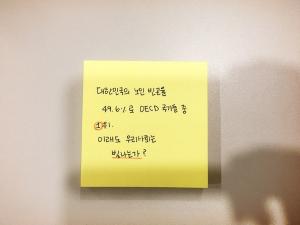 대한민국의 노인 빈곤율
49.6%로 OECD 국가들 중
1위.
이래도 우리사회는
빛나는가?